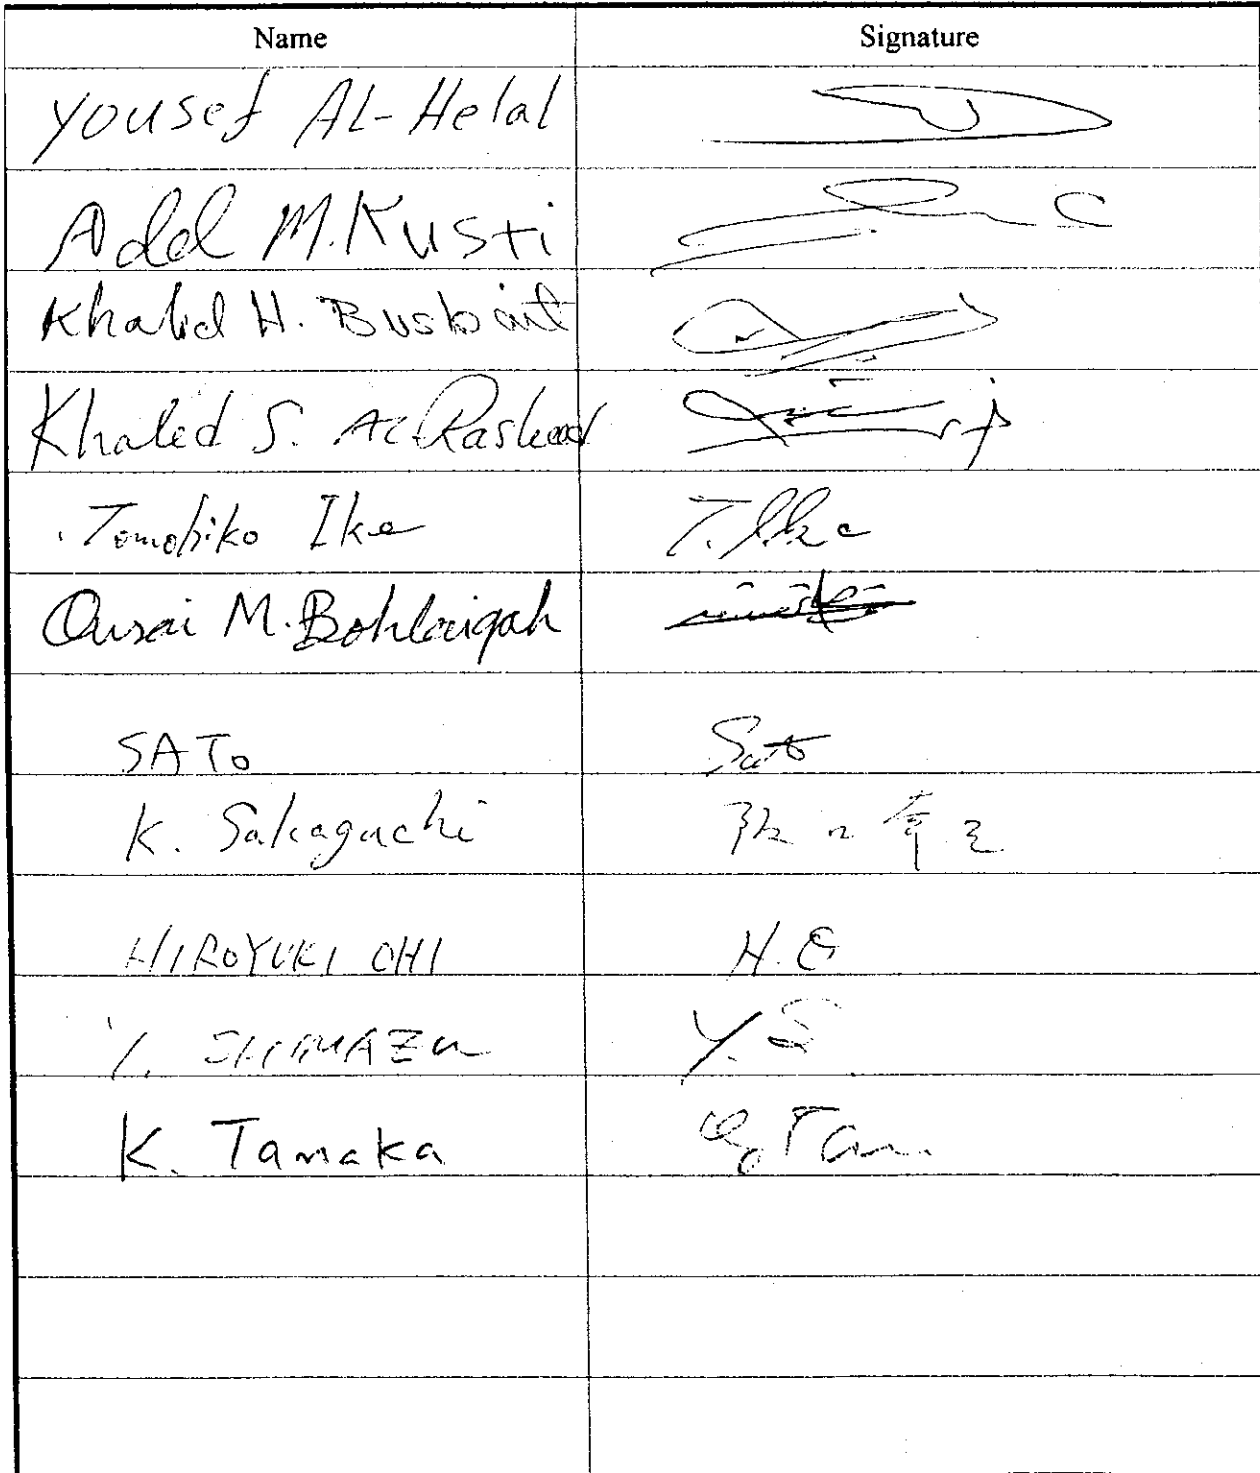 Name Signature
Yousef AL-Helal
Adel M. Kusti
Khalid H. Busbait
Khaled S. AL-Rasheed
Tomohiko Ike T. Ike
Qusai M. Bohlaigah
SATo Sato
K. Sakaguchi
HIROYUKI OHI H. O
Y. SHIMAZu Y. S
K. Tanaka Tan